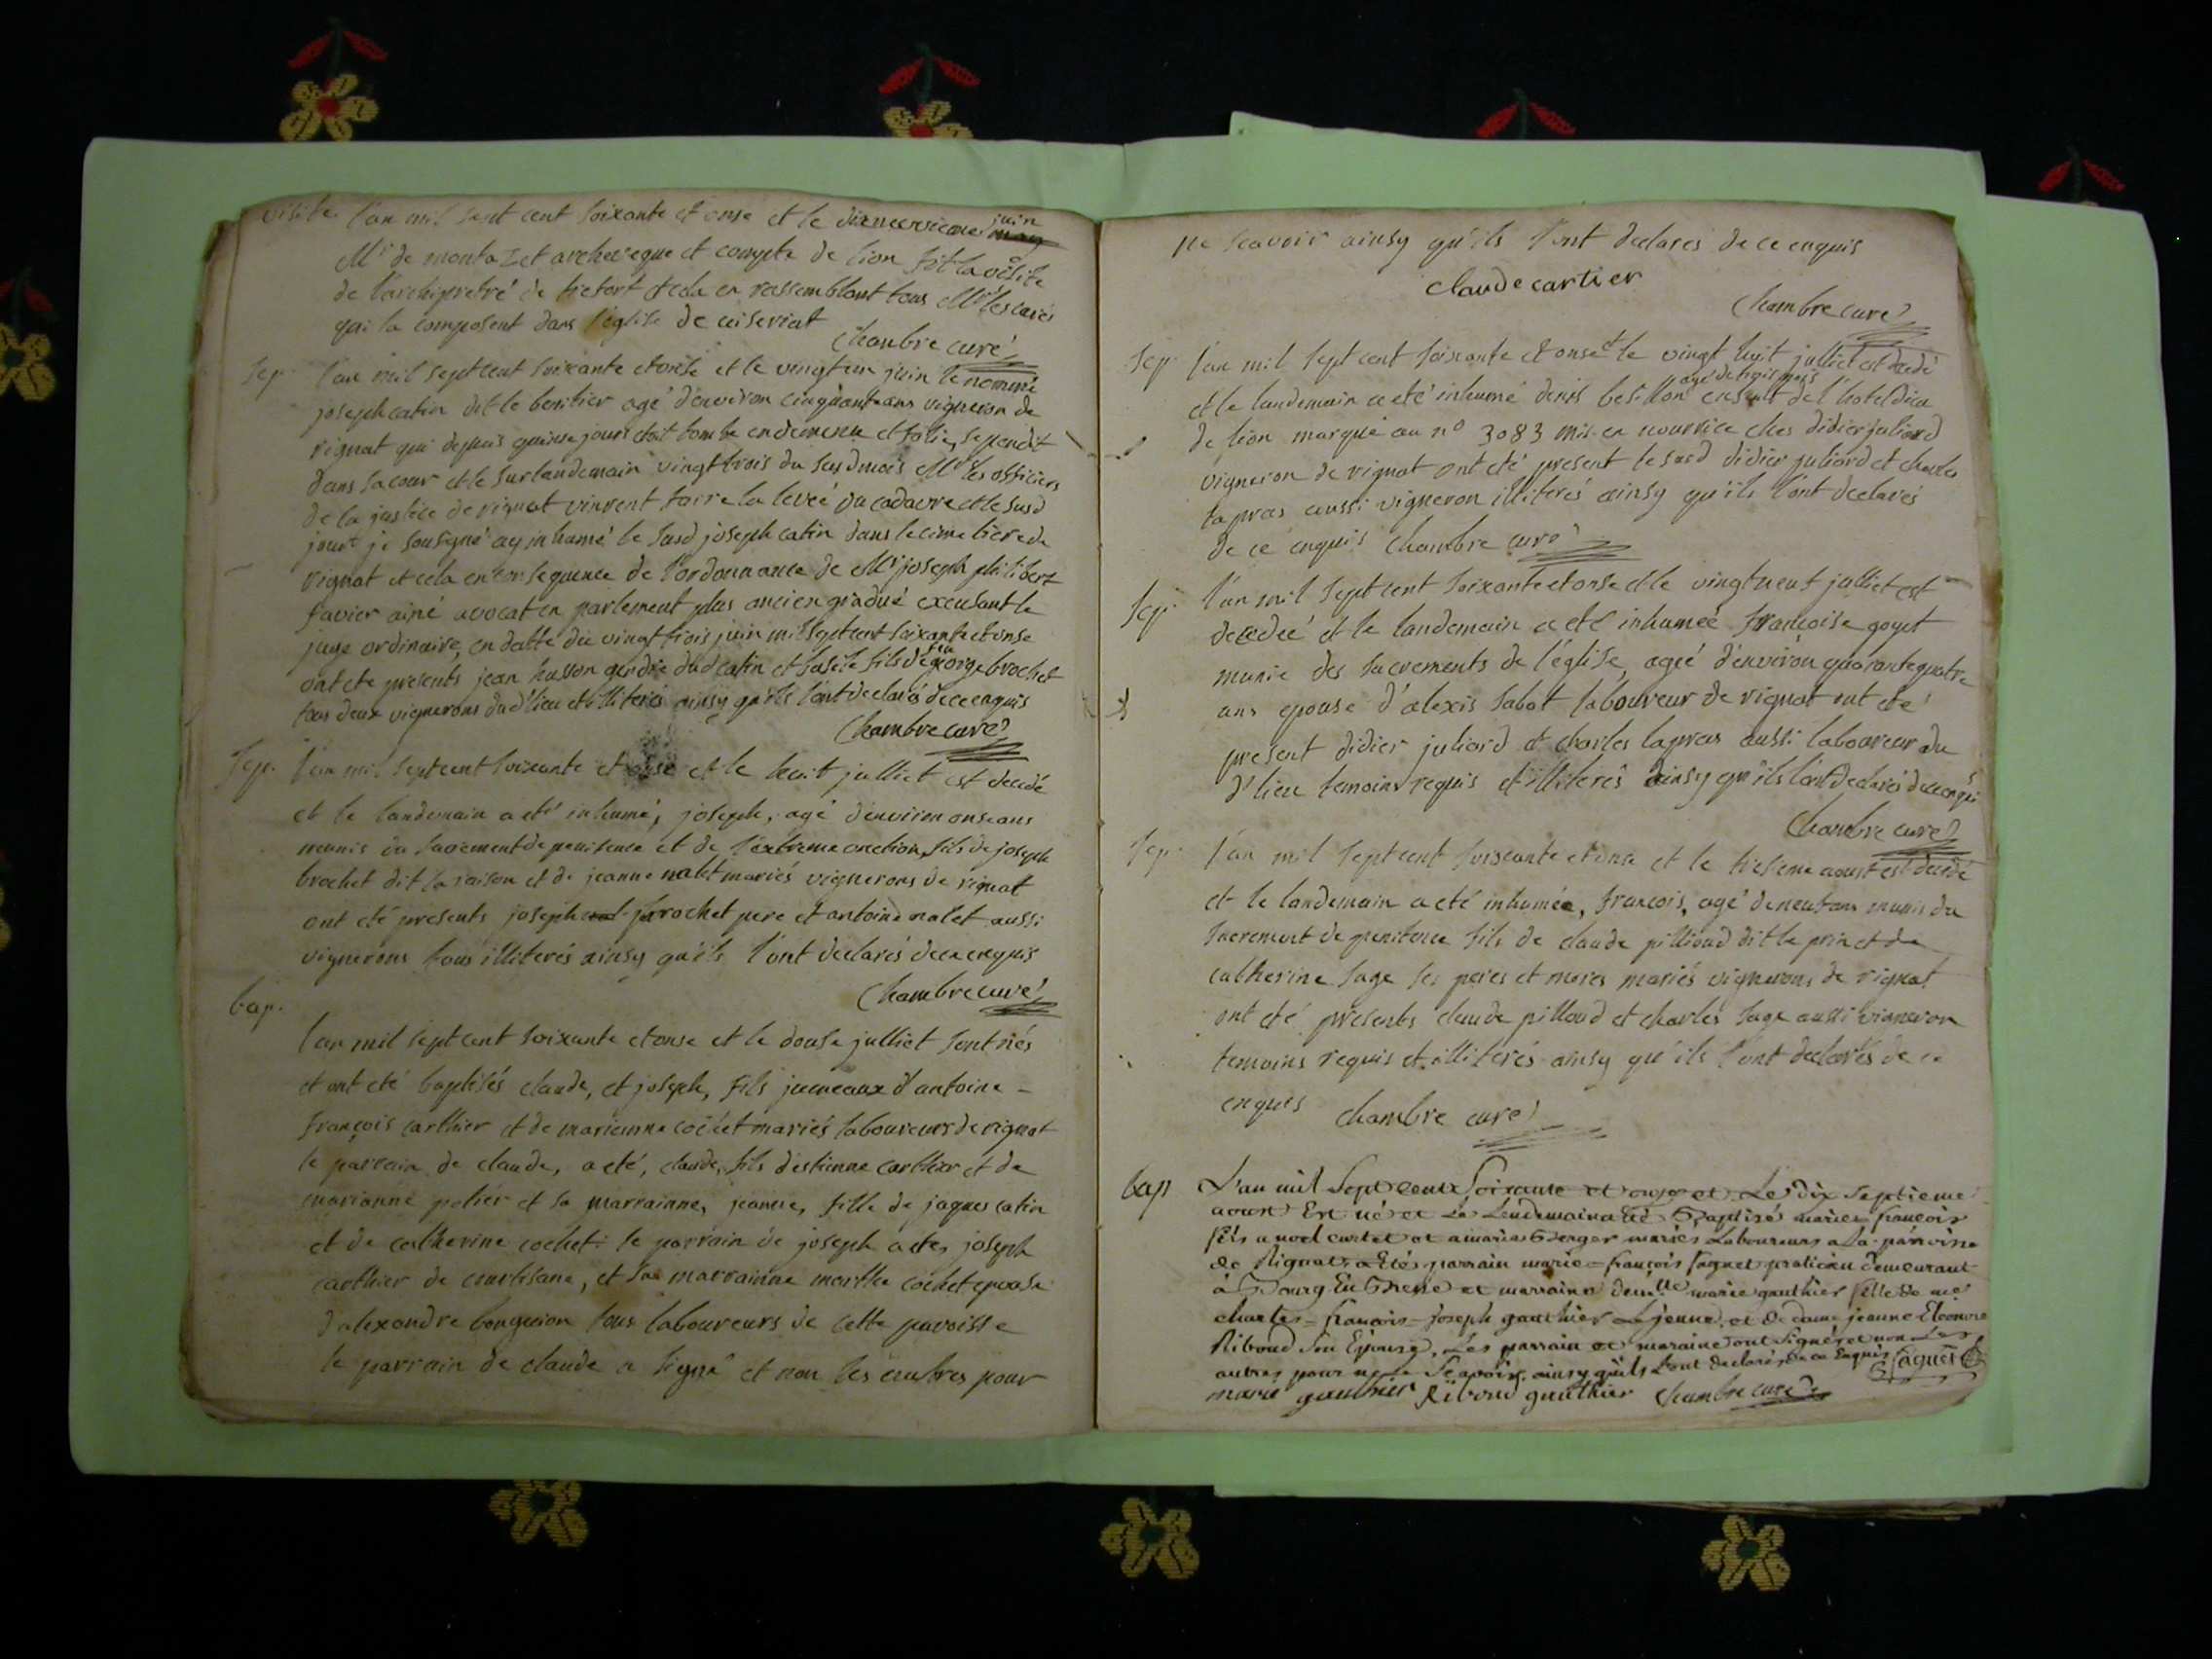 visite. l'an mil sept cent soixante et onse et le dixneuvieme juin may
Mr de montazet archeveque et compte de lion fit la visite
de l'archipretré de tretort et cela en rassemblant tous Mrs les curés
qui la composent dans l'eglise de ceiseriat
Chambre curé
sep. l'an mil sept cent soixante et onse et le vingt un juin le nommé
joseph catin dit le benitier agé d'environ cinquante ans vigneron de
rignat qui depuis quinse jours etoit tombé en demence et folie, se pendit
dans sa cour et le surlandemain vingt trois du susd mois Mrs les officiers
de la justice de rignat vinrent faire la levée du cadavre et le susd
jour je sousigné ay inhumé le susd joseph catin dans le cimetiere de
rignat et cela en consequence de l'ordonnance de Mr joseph philibert
favier ainé avocat en parlement plus ancien gradué excusant le
juge ordinaire, en datte du vingt trois juin mil sept cent soixante et onse
ont eté presents jean husson gendre dud catin et fils de feu george brochet
tous deux vignerons dud lieu et illiterés ainsy qu'ils l'ont declarés de ce enquis
Chambre curé
sep. l'an mil sept cent soixante et onse et le huit julliet est decedé
et le landemain a eté inhumé, joseph, agé d'environ onse ans
munis du sacrement de penitence et de l'extreme onction, fils de joseph
brochet dit la raison et de jeanne nalet mariés vignerons de rignat
ont eté presents joseph brochet pere et antoine nalet aussi
vignerons tous illiterés ainsy qu'ils l'ont declarés de ce enquis
Chambre curé
bap.
l'an mil sept cent soixante et onse et le douse julliet sont nés
et ont eté baptisés claude, et joseph, fils jumeaux d'antoine
françois carthier et de marienne cochet mariés laboureurs de rignat
le parrain de claude, a eté, claude, fils d'estienne carthier et de
marianne potier et sa marrainne, jeanne, fille de jaques catin
et de catherine cochet: le parrain de joseph a eté, joseph
carthier de courtisane, et sa marrainne marthe cochet epouse
d'alexandre bonguion tous laboureurs de cette paroisse
le parrain de claude a signé et non les autres pour
ne scavoir ainsy qu'ils l'ont declarés de ce enquis
claude cartier
Chambre curé
sep. l'an mil sept cent soixante et onse et le vingt huit julliet est decedé
et le landemain a eté inhumé denis besillon agé de trois mois enfant de l'hotel dieu
de lion marqué au no 3083 mis en nourrice ches didier juliard
vigneron de rignat ont eté present le susd didier juliard et charles
lapras aussi vigneron illiterés ainsy qu'ils l'ont declarés
de ce enquis Chambre curé
sep. l'an mil sept cent soixante et onse et le vingt neuf julliet est
decedée et le landemain a eté inhumée françoise goyet
munie des sacrements de l'église, agée d'environ quarante quatre
ans epouse d'alexis sabot laboureur de rignat ont eté
present didier juliard et charles lapras aussi laboureur du
d lieu temoins requis et illiterés ainsy qu'ils l'ont declarés de ce enquis
Chambre curé
sep. l'an mil sept cent soixante et onse et le treseme aoust est decedé
et le landemain a eté inhumée, françois, agé de neuf ans munis du
sacrement de penitence fils de claude pillioud dit le prin et de
catherine sage ses peres et meres mariés vignerons de rignat
ont eté presents claude pilloud et charles sage aussi vigneron
temoins requis et illiterés ainsy qu'ils l'ont declarés de ce
enquis Chambre curé
bap L'an mil Sept cent Soixante et onze et Le dix Septieme
aoust Est né et Le Lendemain a Eté Baptisé marie françois
fils a noel curtet et a marie Berger mariés Laboureurs a la paroisse
de Rignat, a Eté parrain marie=françois faguet praticien demeurant
à Bourg En Bresse et marraine demlle marie gauthier fille de me
charles=françois=joseph gauthier Le jeune, et de dame jeanne Eleonore
Riboud Son Epouse, Les parrain et maraine ont Signér et non Les
autres pour ne Le Sçavoir, ainsy qu'ils L'ont declarés de ce Enquis faguet
marie gauthier Riboud gauthier Chambre curé